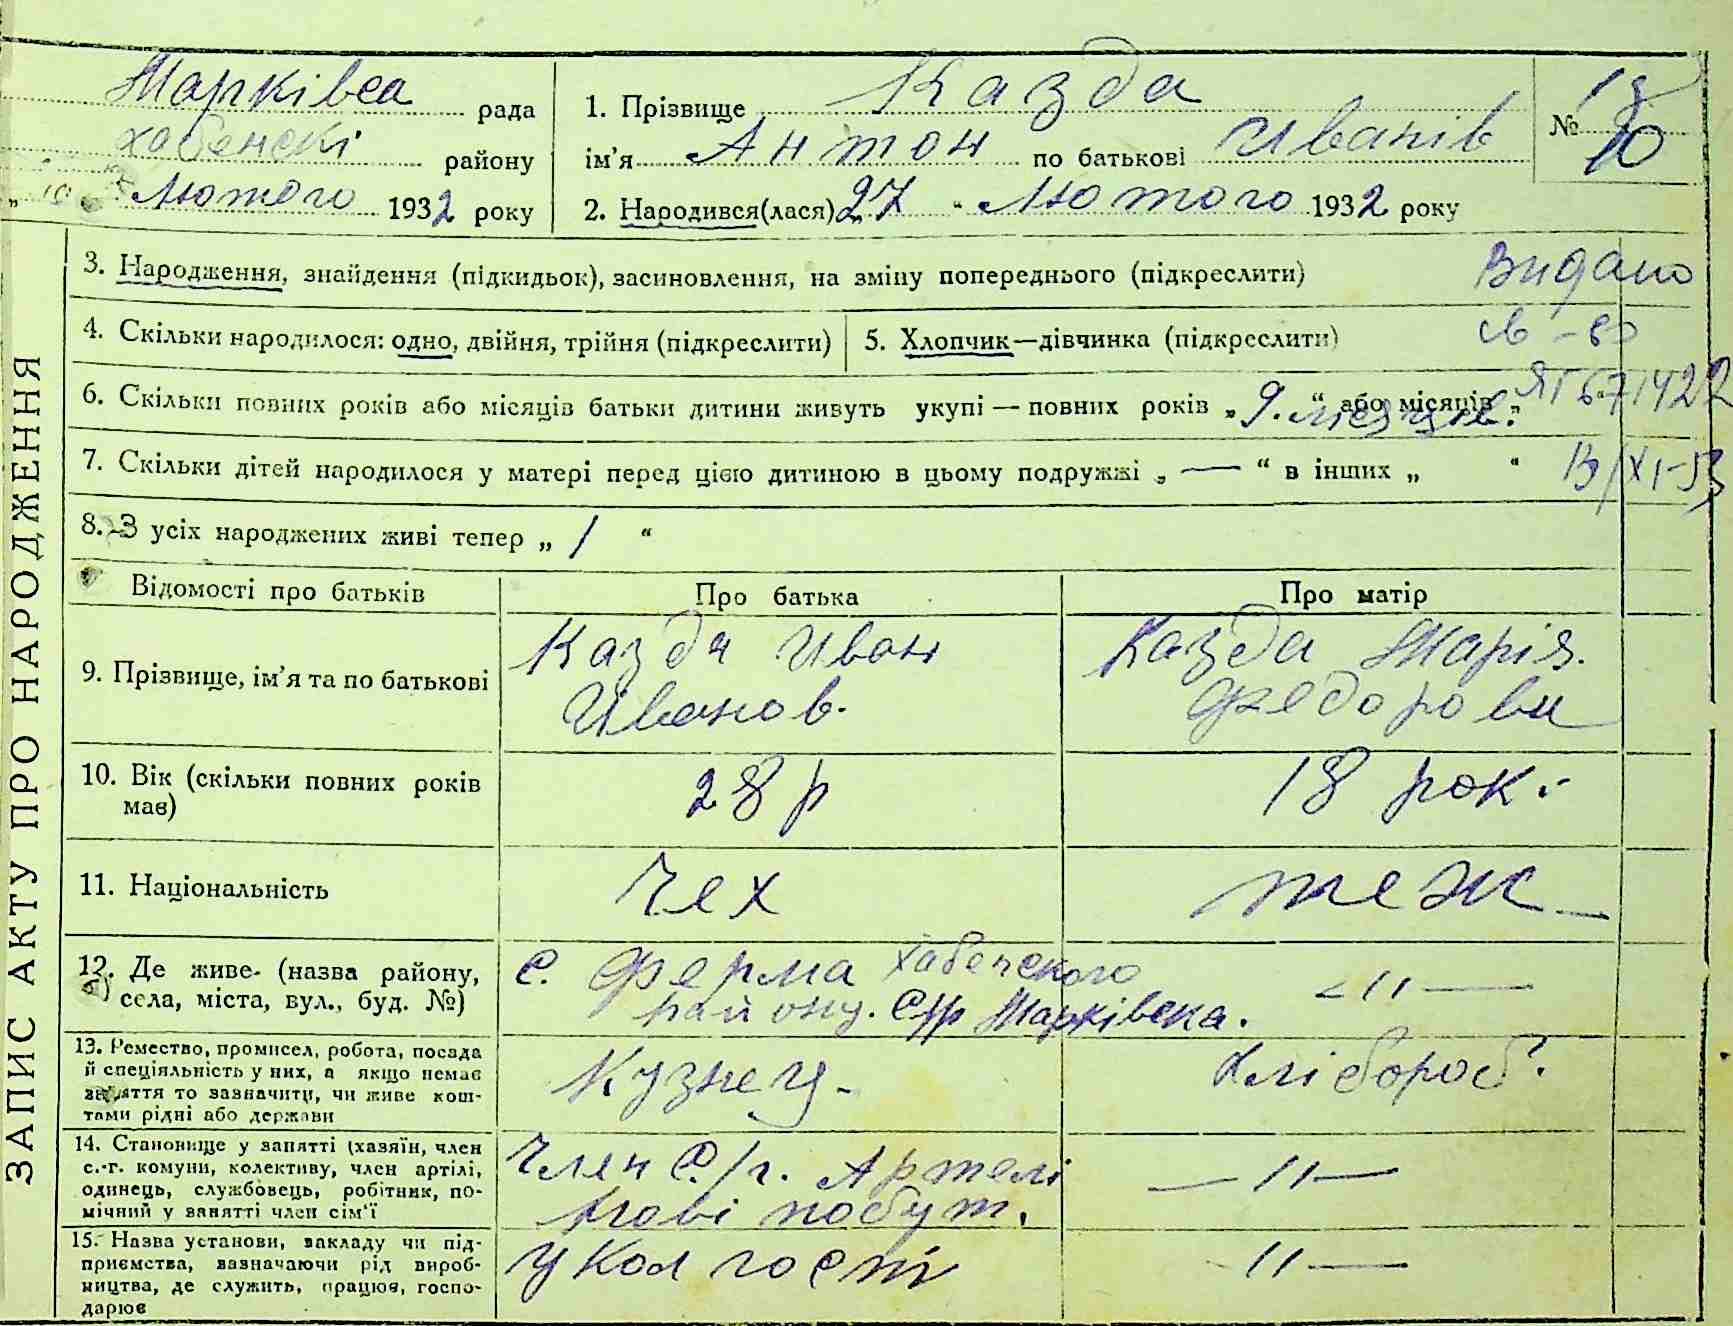 ЗАПИС АКТУ ПРО НАРОДЖЕННЯ
Марківса рада
хабенскі району
Лютого 1932 року
1. Прізвище Казда
ім'я Антон по батькові Иванів
2. Народився(лася) 27 " Лютого 1932 року
№ 10
3. Народження, знайдення (підкидьок), засиновлення, на зміну попереднього (підкреслити)
Видано
4. Скільки народилося: одно, двійня, трійня (підкреслити)
5. Хлопчик—дівчинка (підкреслити)
св-во
6. Скільки повних років або місяців батьки дитини живуть укупі — повних років „ 9. місяців. “ або місяців „
ЯГ 671422
7. Скільки дітей народилося у матері перед цією дитиною в цьому подружжі „ — “ в інших „ “
13/XI-53
8. З усіх народжених живі тепер „ 1 “
Відомості про батьків
Про батька
Про матір
9. Прізвище, ім'я та по батькові
Казда Иван
Иванов.
Казда Марія.
Федоровн
10. Вік (скільки повних років
має)
28 р
18 рок.
11. Національність
Чех
теж
12. Де живе- (назва району,
б) села, міста, вул., буд. №)
с. Ферма хабенского
району. С/р Марківска.
-"-
13. Ремество, промисел, робота, посада
й спеціяльність у них, а якщо немає
заняття то зазначити, чи живе кош-
тами рідні або держави
Кузнец-
хлібороб.
14. Становище у занятті (хазяїн, член
с.-г. комуни, колективу, член артілі,
одинець, службовець, робітник, по-
мічний у занятті член сім'ї
Член С/г. Артелі
Нові побут.
— " —
15. Назва установи, закладу чи під-
приємства, зазначаючи рід вироб-
ництва, де служить, працює, госпо-
дарює
у колгости
" —